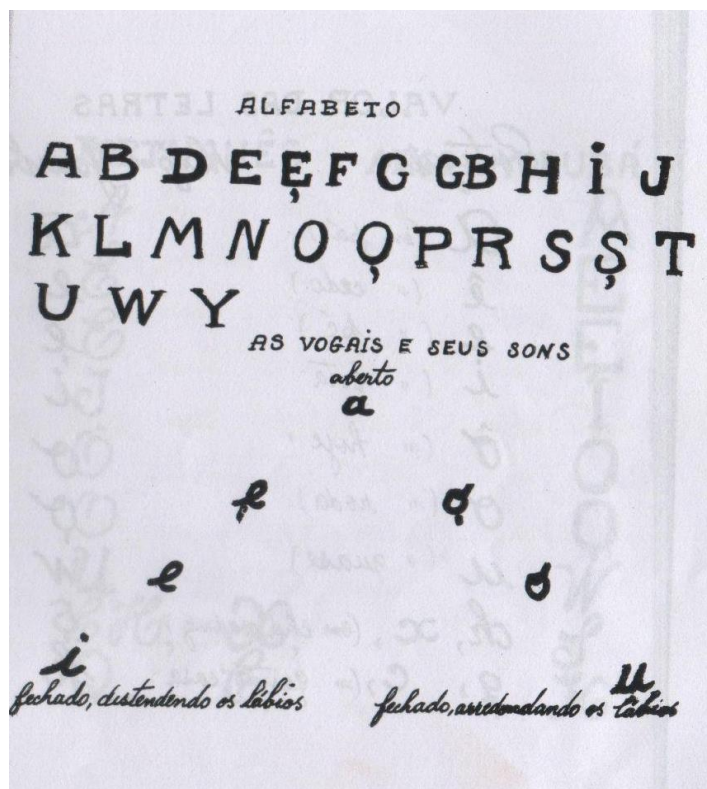 ALFABETO
A B D E Ẹ F G GB H i J
K L M N O Ọ P R S Ṣ T
U W Y
AS VOGAiS E SEUS SONS
aberto
a
ẹ ọ
e o
i u
fechado, distendendo os lábios fechado, arredondando os lábios